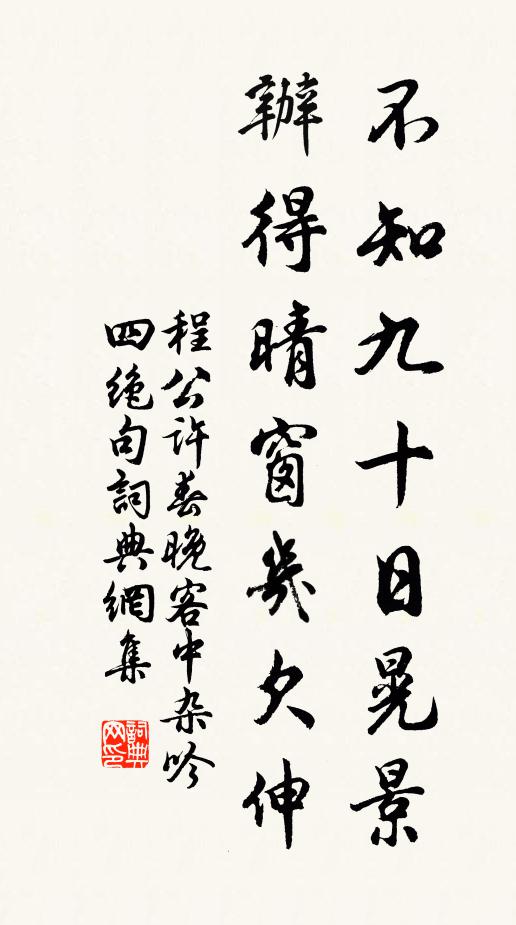 不知九十日晃景
辦得晴窗幾欠伸
程公許春晚客中杂吟
四絶句詞典網集
詞典网印